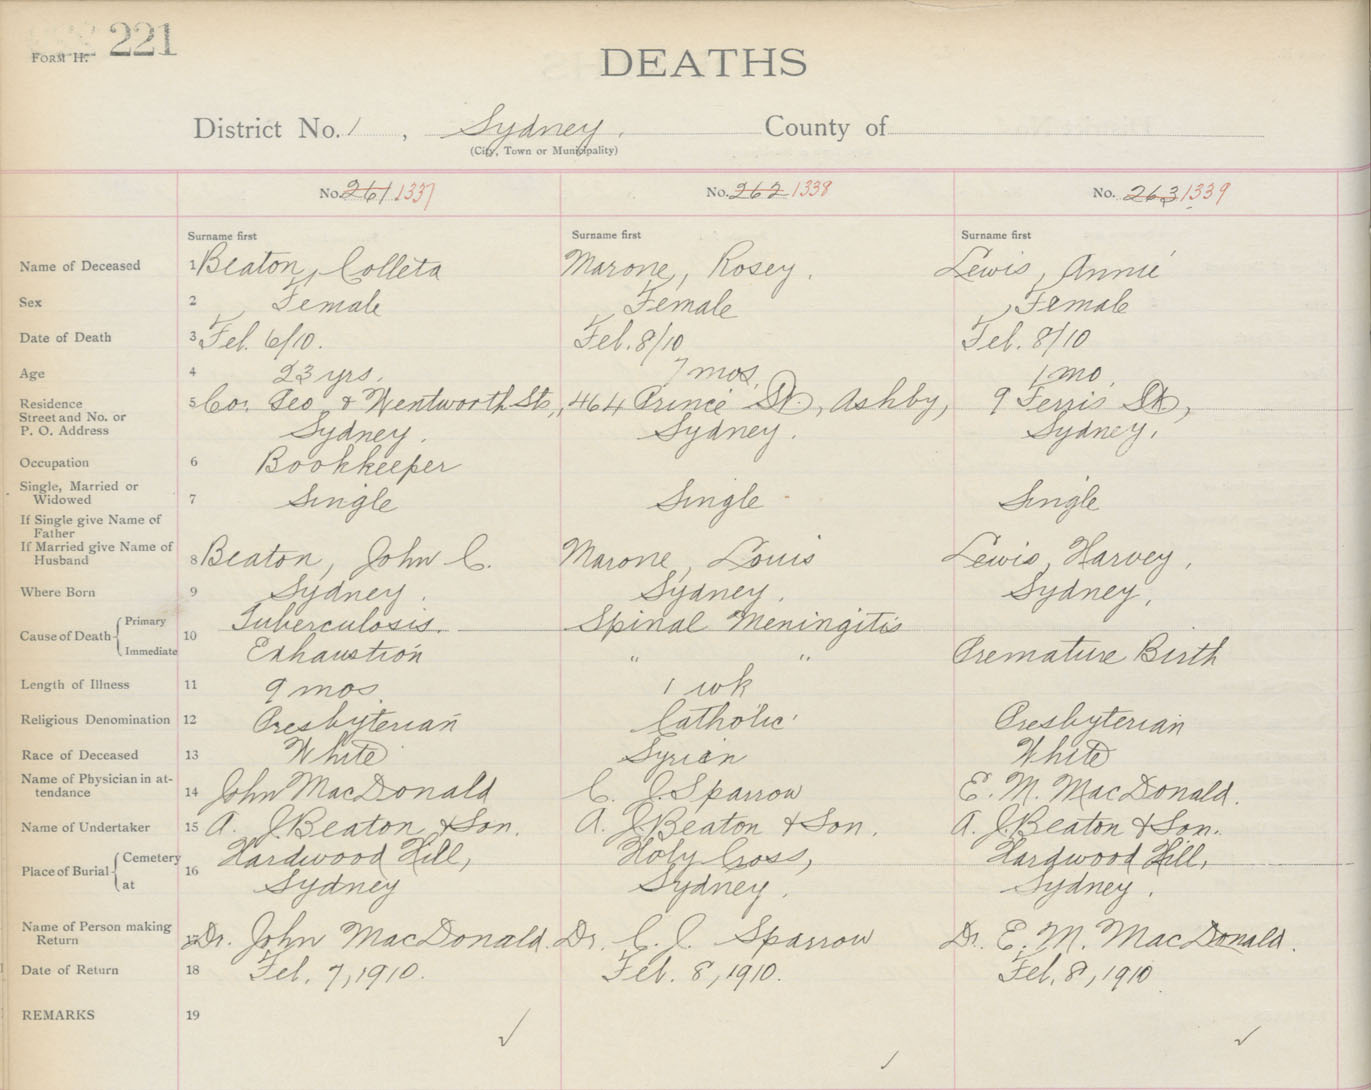 221
FORM H.
DEATHS
District No. 1, Sydney. County of
(City, Town or Municipality)
No. 261 1337 No. 262 1338 No. 263 1339
Surname first Surname first Surname first
Name of Deceased 1 Beaton, Colleta Marone, Rosey. Lewis, Annie
Sex 2 Female Female Female
Date of Death 3 Feb. 6/10. Feb. 8/10 Feb. 8/10
Age 4 23 yrs. 7 mos. 1 mo.
Residence
Street and No. or
P. O. Address
5 Cor. Geo & Wentworth Sts., 464 Prince St., Ashby, 9 Ferris St.,
Sydney. Sydney. Sydney.
Occupation 6 Bookkeeper
Single, Married or
Widowed
7 Single Single Single
If Single give Name of
Father
If Married give Name of
Husband
8 Beaton, John C. Marone, Louis Lewis, Harvey.
Where Born 9 Sydney. Sydney. Sydney.
Cause of Death Primary 10 Tuberculosis. Spinal Meningitis
Immediate Exhaustion " " Premature Birth
Length of Illness 11 9 mos. 1 wk
Religious Denomination 12 Presbyterian Catholic Presbyterian
Race of Deceased 13 White Syrian White
Name of Physician in at-
tendance
14 John MacDonald C. J. Sparrow E. M. MacDonald.
Name of Undertaker 15 A. J. Beaton & Son. A. J. Beaton & Son. A. J. Beaton & Son.
Place of Burial Cemetery 16 Hardwood Hill, Holy Cross, Hardwood Hill,
at Sydney Sydney. Sydney.
Name of Person making
Return
17 Dr. John MacDonald. Dr. C. J. Sparrow Dr. E. M. MacDonald.
Date of Return 18 Feb. 7, 1910. Feb. 8, 1910. Feb. 8, 1910
REMARKS 19